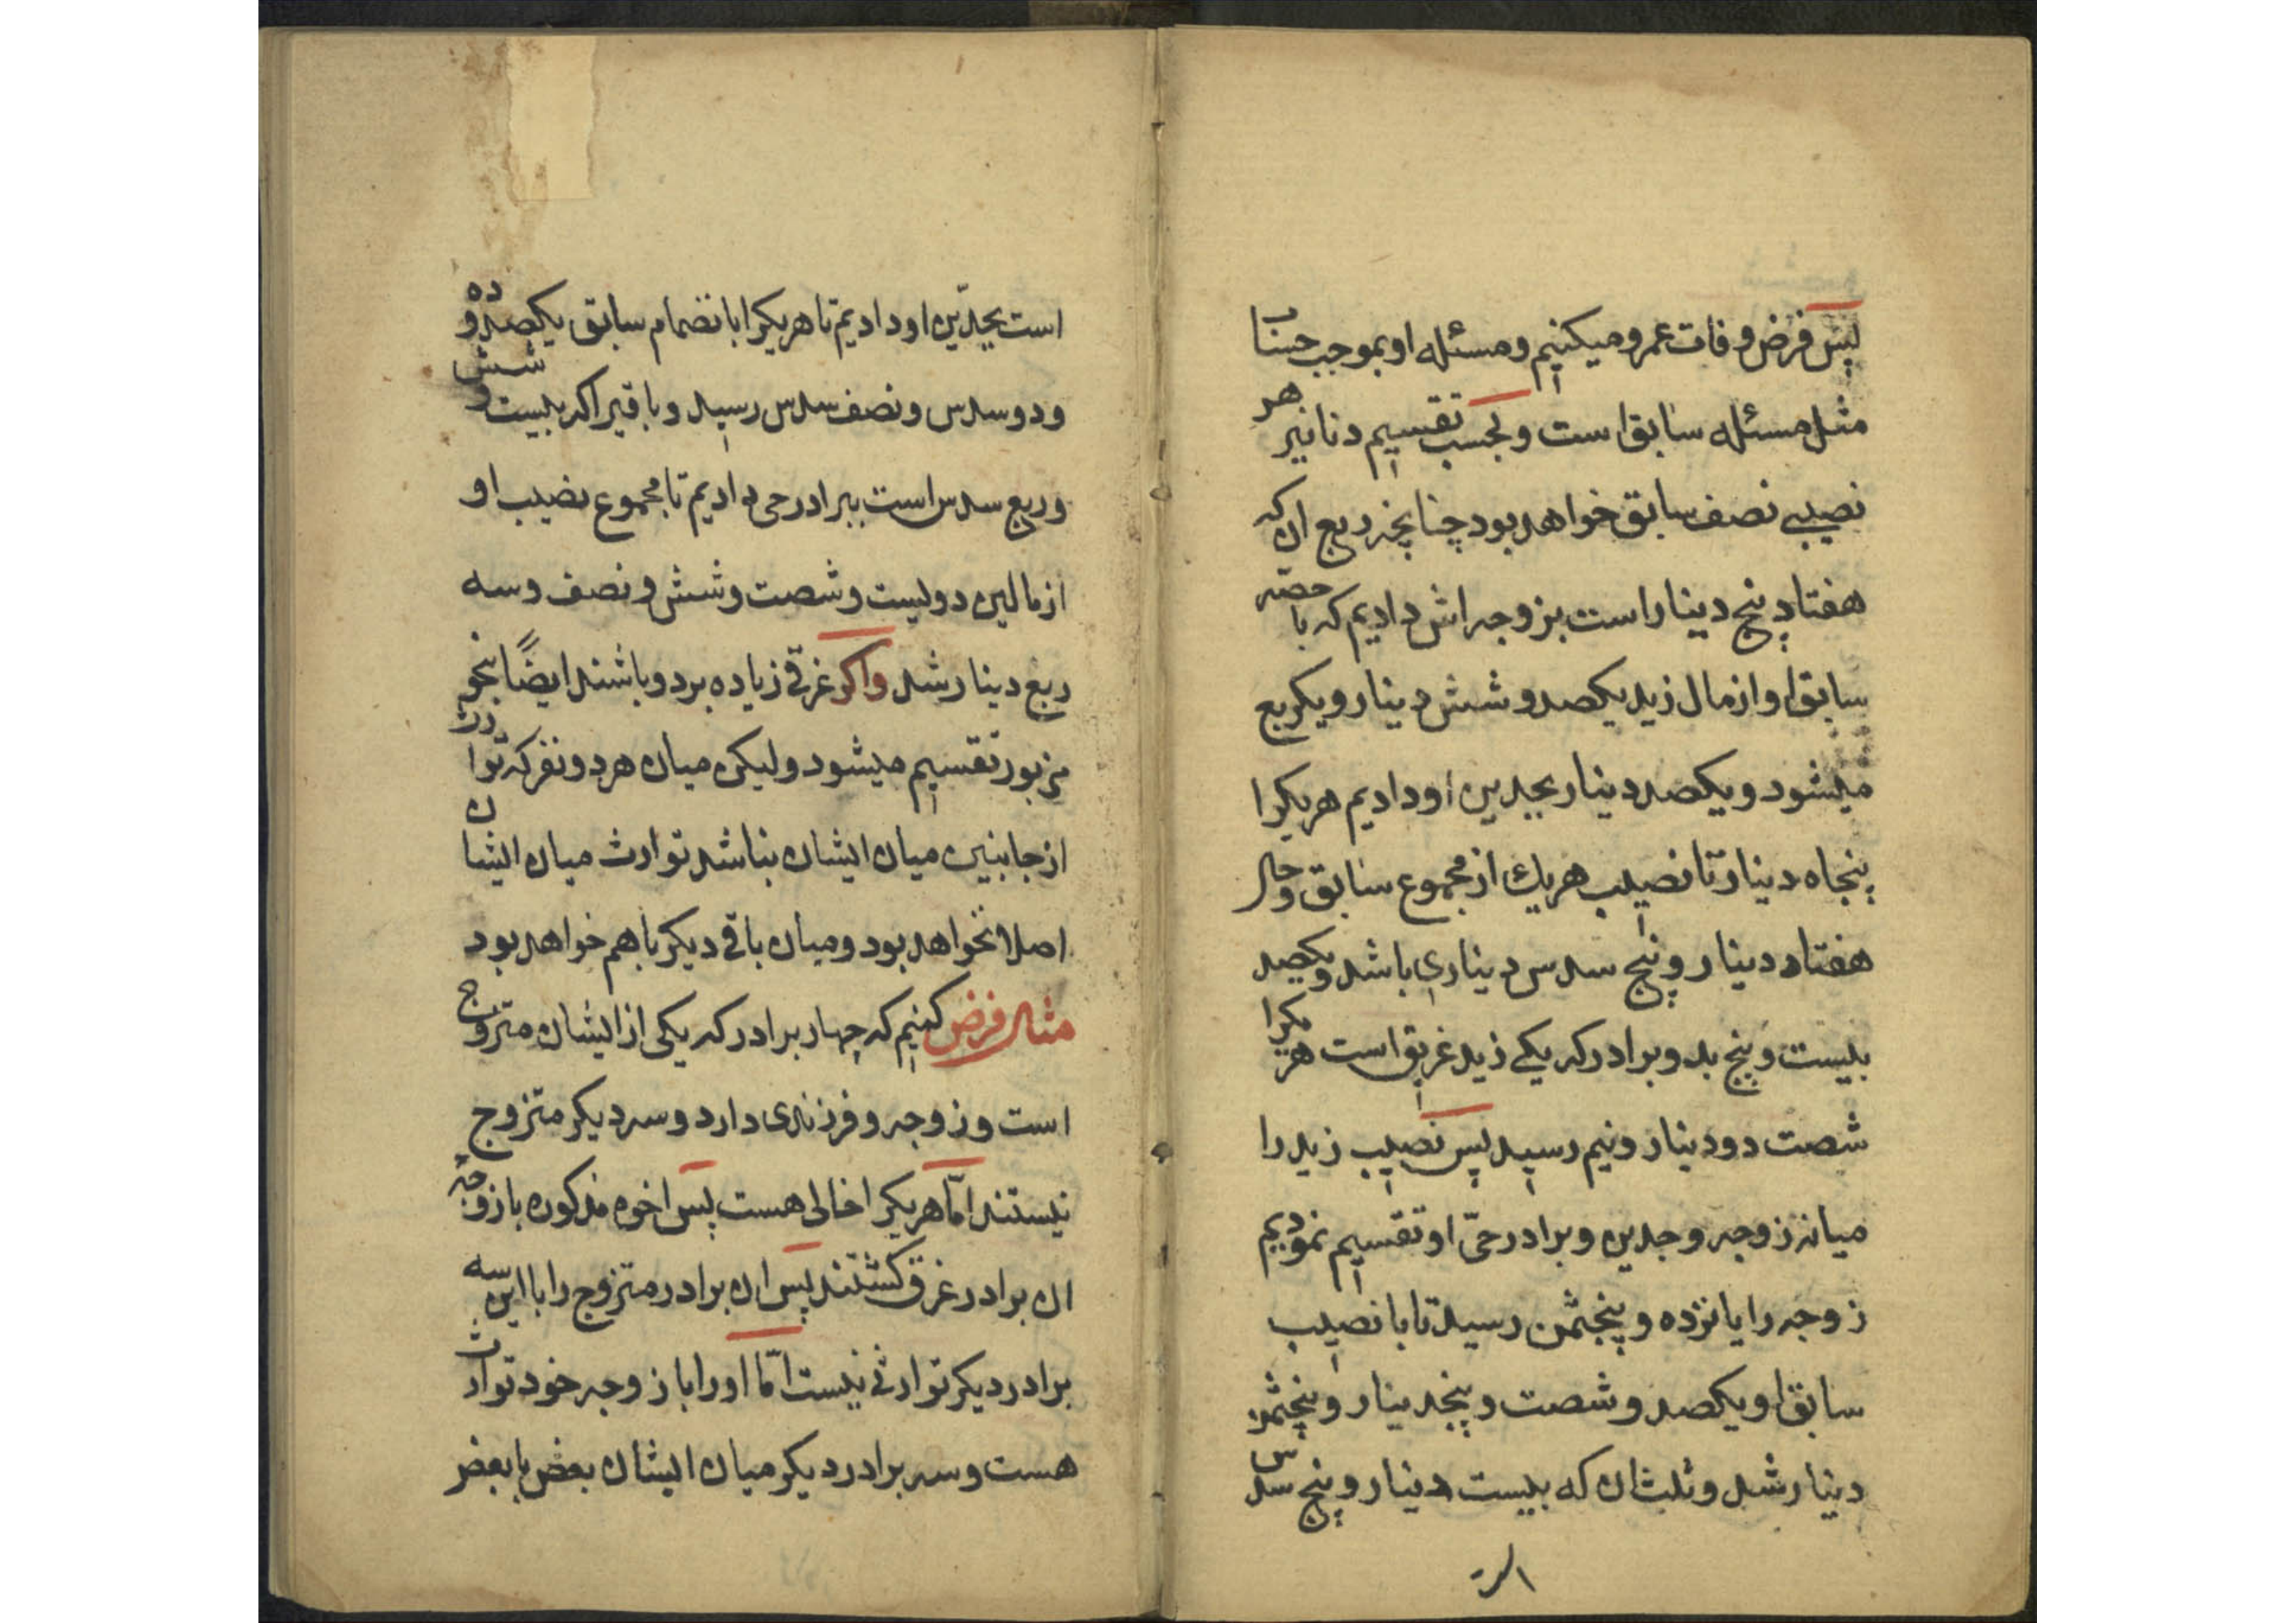 پس فرض وفات عمرو میکنیم ومسئله او بموجب حساب
مثل مسئله سابق است و بحسب تقسیم دنانیر هر
نصیبی نصف سابق خواهد بود چنانچه ربع ان که
هفتاد پنج دینار است بزوجه اش دادیم که با حصّه
سابق او از مال زید یکصد و شش دینار و یکربع
میشود و یکصد دینار بجدین او دادیم هریکرا
پنجاه دینار تا نصیب هریك از مجموع سابق و حال
هفتاد دینار و پنج سدس دیناری باشد و یکصد
بیست و پنج بدو برادر که یکی زید غریق است هریکرا
شصت دو دینار و نیم رسید پس نصیب زید را
میانه زوجه وجدین و برادر حیّ او تقسیم نمودیم
زوجه را پانزده و پنجثمن رسید تا با نصیب
سابق او یکصد و شصت و پنجدینار و پنجثمن
دینار شد و ثلث ان که بیست دینار و پنج سدس
است
است بجدّین او دادیم تا هریکرا بانضمام سابق یکصد و ده
و دو سدس و نصف سدس رسید و باقیرا که بیست و شش
و ربع سدس است ببرادر حی دادیم تا مجموع نصیب او
از مالین دویست و شصت و شش و نصف و سه
ربع دینار شد واکر غرقی زیاده بر دو باشند ایضًا بنحو
مزبور تقسیم میشود ولیکن میان هر دو نفر که توارث
از جانبین میان ایشان نباشد توارث میان ایشان
اصلا نخواهد بود و میان باقی دیکر با هم خواهد بود
مثال فرض کنیم که چهار برادر که یکی از ایشان متزوج
است و زوجه و فرزندی دارد و سه دیکر متزوج
نیستند امّا هریکرا خالی هست پس اخوه مذکوره با زوجه
ان برادر غرق کشتند پس ان برادر متزوج را با این سه
برادر دیکر توارثی نیست امّا او را با زوجه خود توارث
هست و سه برادر دیکر میان ایشان بعض با بعض